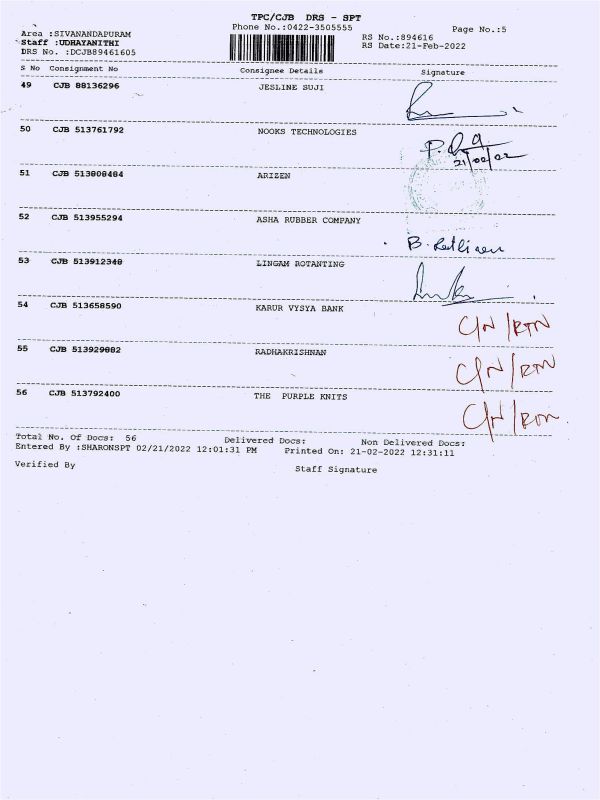 TPC/CJB DRS - SPT
Area :SIVANANDAPURAM Phone No.:0422-3505555 Page No.:5
Staff :UDHAYANITHI RS No.:894616
DRS No. :DCJB89461605 RS Date:21-Feb-2022
S No Consignment No Consignee Details Signature
49 CJB 88136296 JESLINE SUJI
50 CJB 513761792 NOOKS TECHNOLOGIES
21/02/22
51 CJB 513808484 ARIZEN
52 CJB 513955294 ASHA RUBBER COMPANY
B.
53 CJB 513912348 LINGAM ROTANTING
54 CJB 513658590 KARUR VYSYA BANK C/N/RTN
55 CJB 513929882 RADHAKRISHNAN C/N/RTN
56 CJB 513792400 THE PURPLE KNITS C/N/RTN.
Total No. Of Docs: 56 Delivered Docs: Non Delivered Docs:
Entered By :SHARONSPT 02/21/2022 12:01:31 PM Printed On: 21-02-2022 12:31:11
Verified By Staff Signature